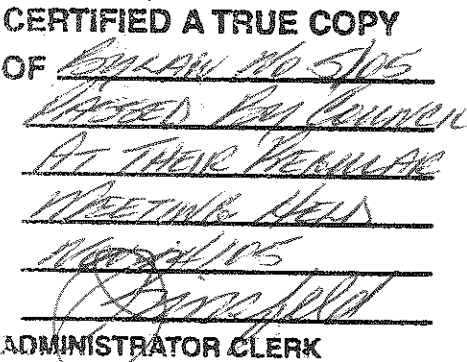 CERTIFIED A TRUE COPY
OF BYLAW NO 5/05
PASSED BY COUNCIL
AT THEIR REGULAR
MEETING HELD
/05
ADMINISTRATOR CLERK